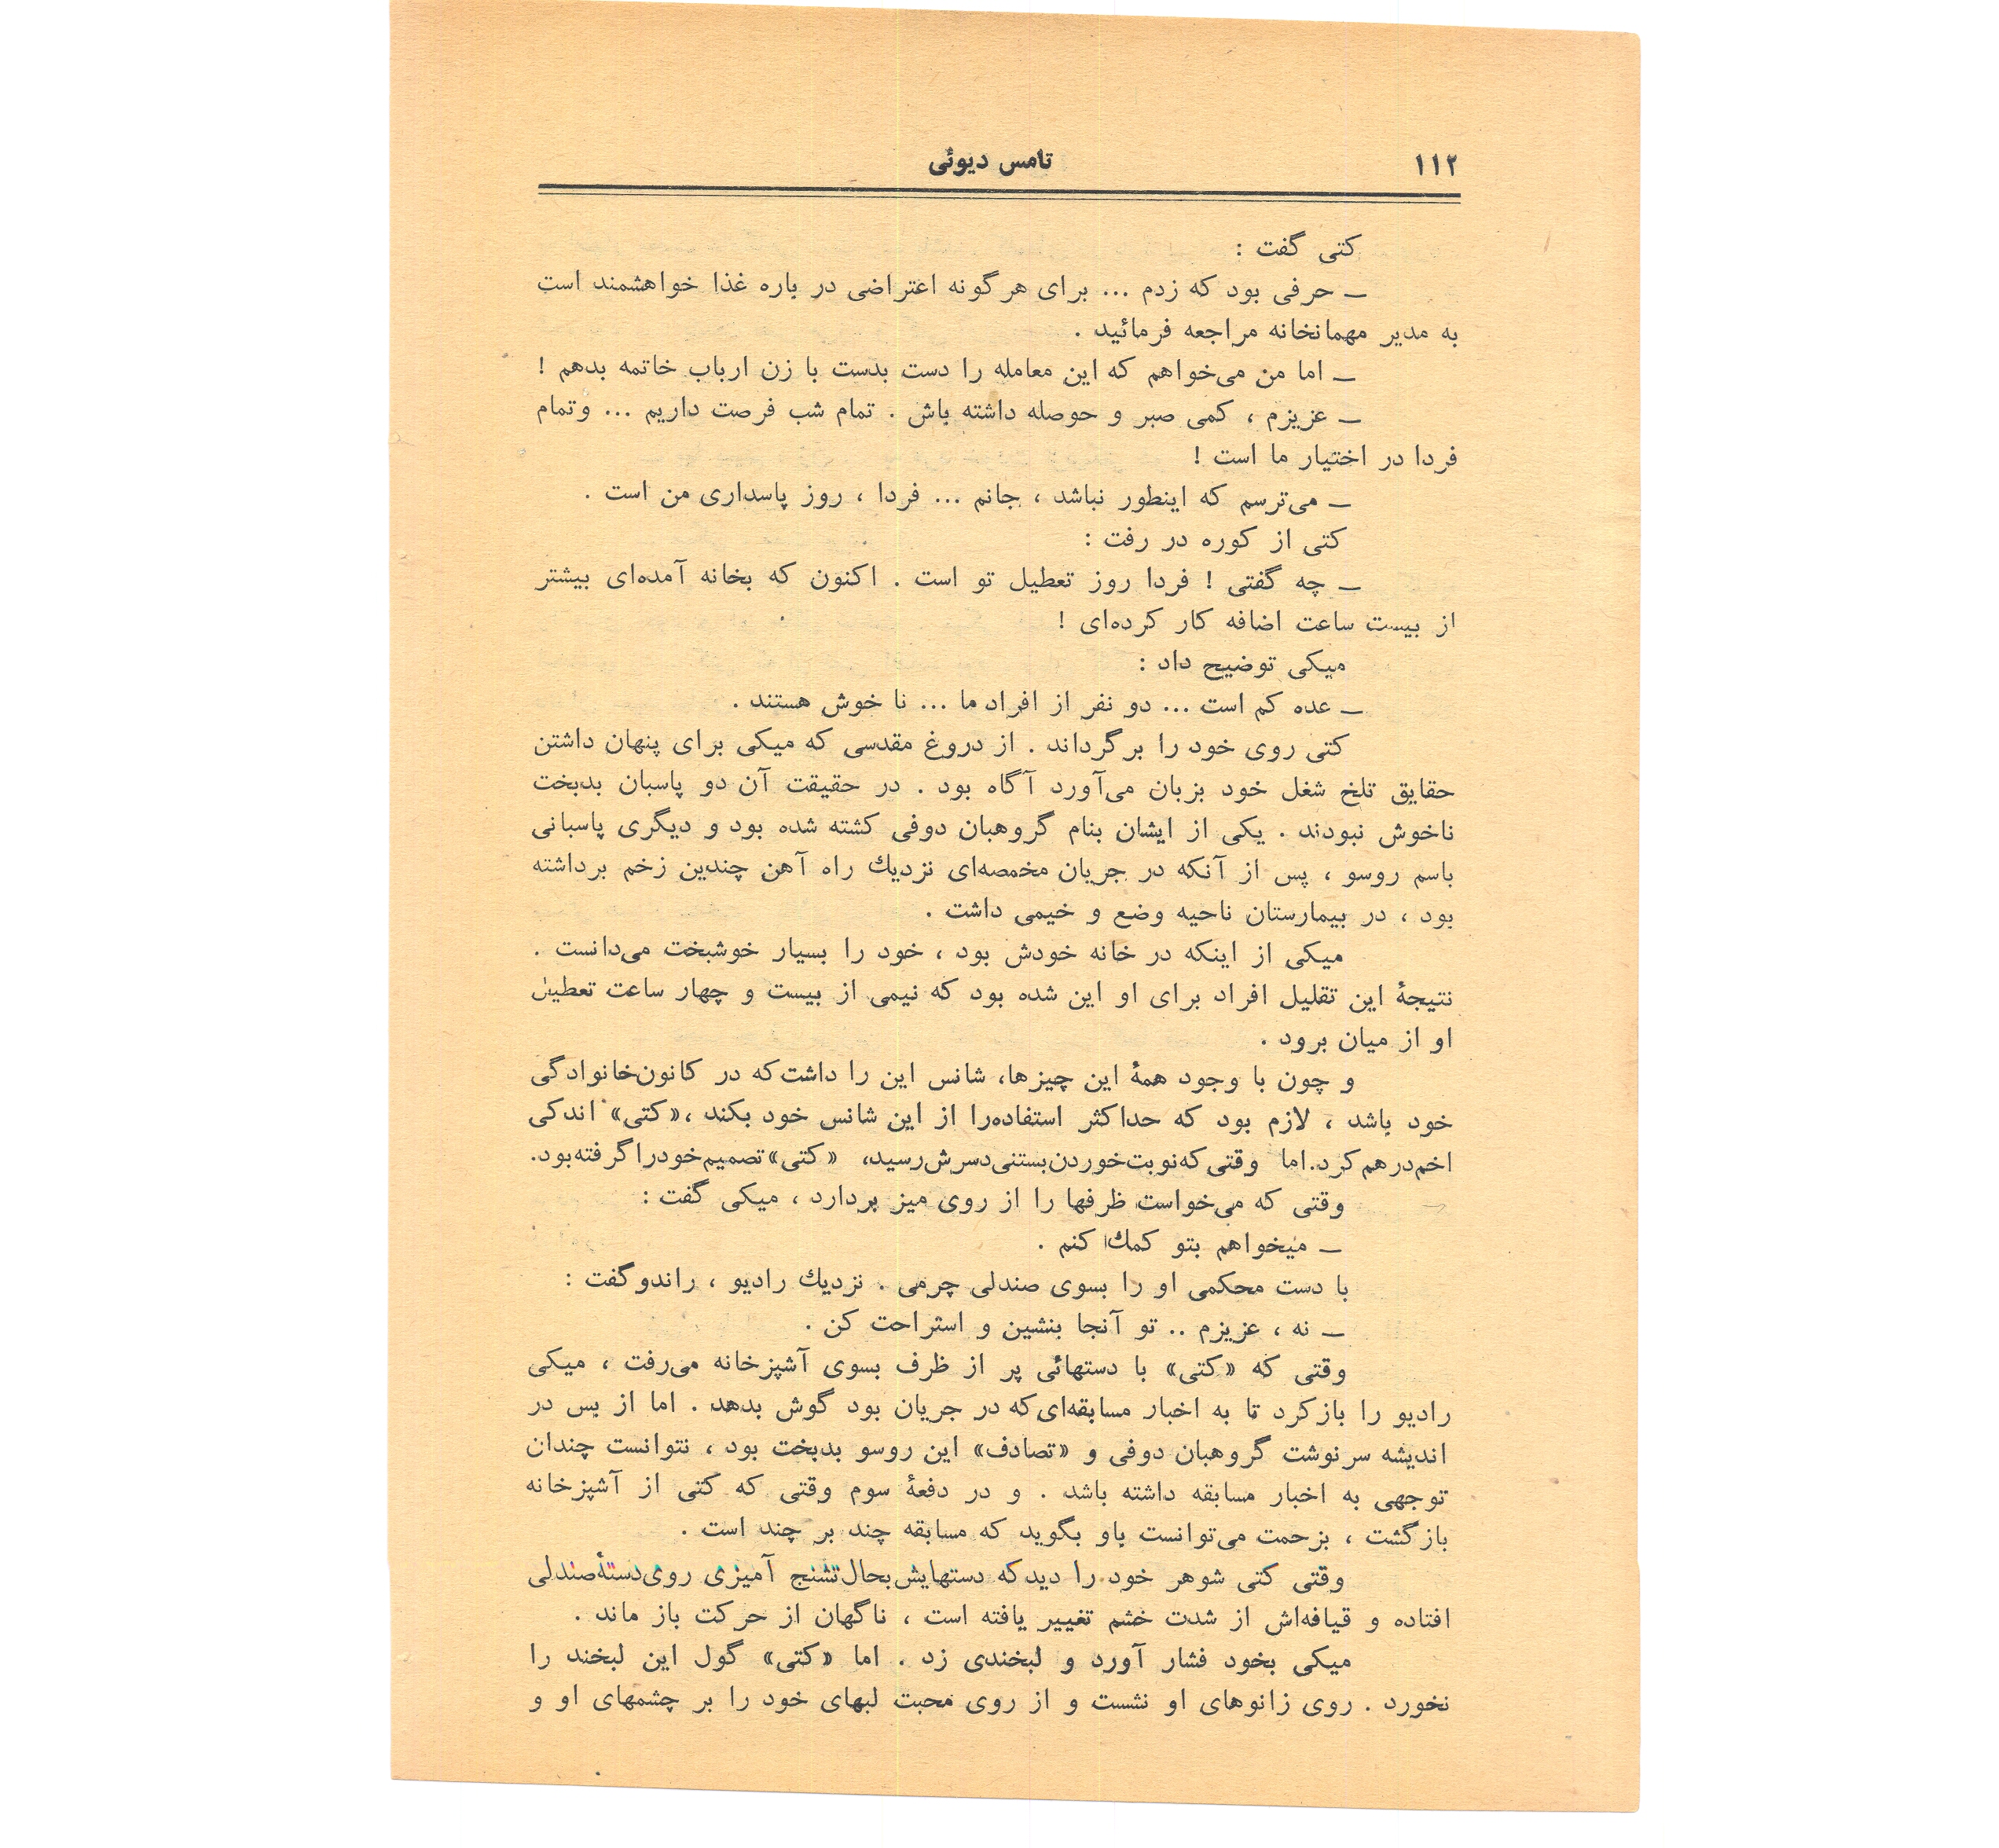 ۱۱۲
تامس دیوئی
کتی گفت :
ـ حرفی بود که زدم ... برای هر گونه اعتراضی در باره غذا خواهشمند است
به مدیر مهمانخانه مراجعه فرمائید .
ـ اما من می‌خواهم که این معامله را دست بدست با زن ارباب خاتمه بدهم !
ـ عزیزم ، کمی صبر و حوصله داشته باش . تمام شب فرصت داریم ... وتمام
فردا در اختیار ما است !
ـ می‌ترسم که اینطور نباشد ، جانم ... فردا ، روز پاسداری من است .
کتی از کوره در رفت :
ـ چه گفتی ! فردا روز تعطیل تو است . اکنون که بخانه آمده‌ای بیشتر
از بیست ساعت اضافه کار کرده‌ای !
میکی توضیح داد :
ـ عده کم است ... دو نفر از افراد ما ... نا خوش هستند .
کتی روی خود را بر گرداند . از دروغ مقدسی که میکی برای پنهان داشتن
حقایق تلخ شغل خود بزبان می‌آورد آگاه بود . در حقیقت آن دو پاسبان بدبخت
ناخوش نبودند . یکی از ایشان بنام گروهبان دوفی کشته شده بود و دیگری پاسبانی
باسم روسو ، پس از آنکه در جریان مخمصه‌ای نزدیك راه آهن چندین زخم برداشته
بود ، در بیمارستان ناحیه وضع و خیمی داشت .
میکی از اینکه در خانه خودش بود ، خود را بسیار خوشبخت می‌دانست .
نتیجهٔ این تقلیل افراد برای او این شده بود که نیمی از بیست و چهار ساعت تعطیل
او از میان برود .
و چون با وجود همهٔ این چیزها، شانس این را داشت‌که در کانون‌خانوادگی
خود باشد ، لازم بود که حداکثر استفاده‌را از این شانس خود بکند ،«کتی» اندکی
اخم‌درهم‌کرد.اما وقتی‌که‌نوبت‌خوردن‌بستنی‌دسرش‌رسید، «کتی»تصمیم‌خودراگرفته‌بود.
وقتی که می‌خواست ظرفها را از روی میز بردارد ، میکی گفت :
ـ میخواهم بتو کمك کنم .
با دست محکمی او را بسوی صندلی چرمی . نزدیك رادیو ، راندوگفت :
ـ نه ، عزیزم .. تو آنجا بنشین و استراحت کن .
وقتی که «کتی» با دستهائی پر از ظرف بسوی آشپزخانه می‌رفت ، میکی
رادیو را بازکرد تا به اخبار مسابقه‌ای‌که در جریان بود گوش بدهد . اما از بس در
اندیشه سرنوشت گروهبان دوفی و «تصادف» این روسو بدبخت بود ، نتوانست چندان
توجهی به اخبار مسابقه داشته باشد . و در دفعهٔ سوم وقتی که کتی از آشپزخانه
بازگشت ، بزحمت می‌توانست باو بگوید که مسابقه چند بر چند است .
وقتی کتی شوهر خود را دیدکه دستهایش‌بحال‌تشنج آمیزی روی‌دستهٔ‌صندلی
افتاده و قیافه‌اش از شدت خشم تغییر یافته است ، ناگهان از حرکت باز ماند .
میکی بخود فشار آورد و لبخندی زد . اما «کتی» گول این لبخند را
نخورد . روی زانوهای او نشست و از روی محبت لبهای خود را بر چشمهای او و